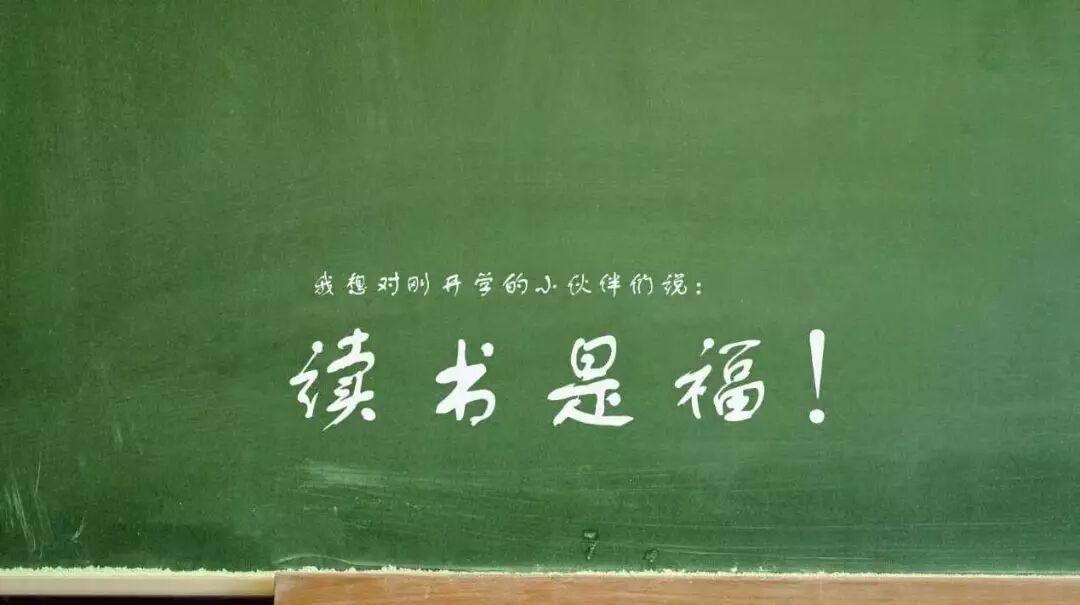 我想对刚开学的小伙伴们说：
读书是福！